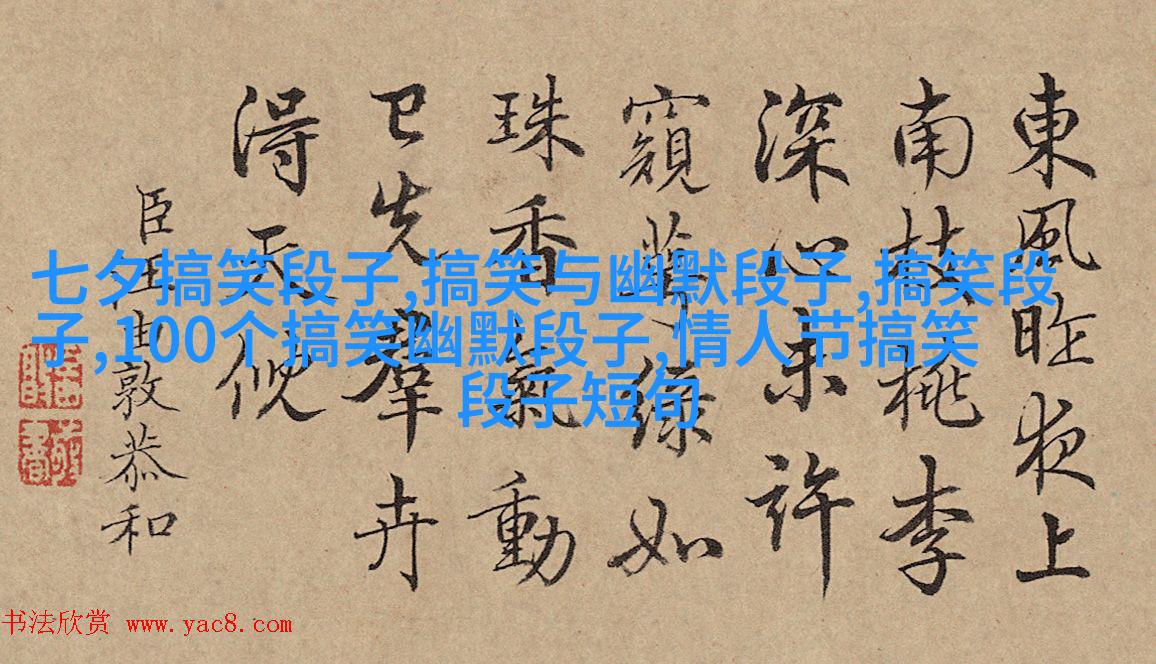 東風昨夜上
南枝桃李
深心未許
窺萼綠如
珠香氣動
已先羣卉
得天倪
臣汪由敦恭和
七夕搞笑段子,搞笑与幽默段子,搞笑段
子,100个搞笑幽默段子,情人节搞笑
段子短句
书法欣赏 www.yac8.com